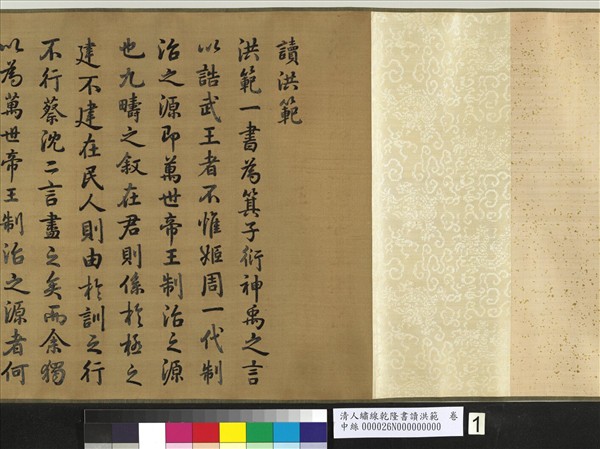 讀洪範
洪範一書為箕子衍神禹之言
以誥武王者不惟姬周一代制
治之源即萬世帝王制治之源
也九疇之叙在君則係於極之
建不建在民人則由於訓之行
不行蔡沈二言盡之矣而余獨
以為萬世帝王制治之源者何
清人繡線乾隆書讀洪範 卷
中絲 000026N000000000
1